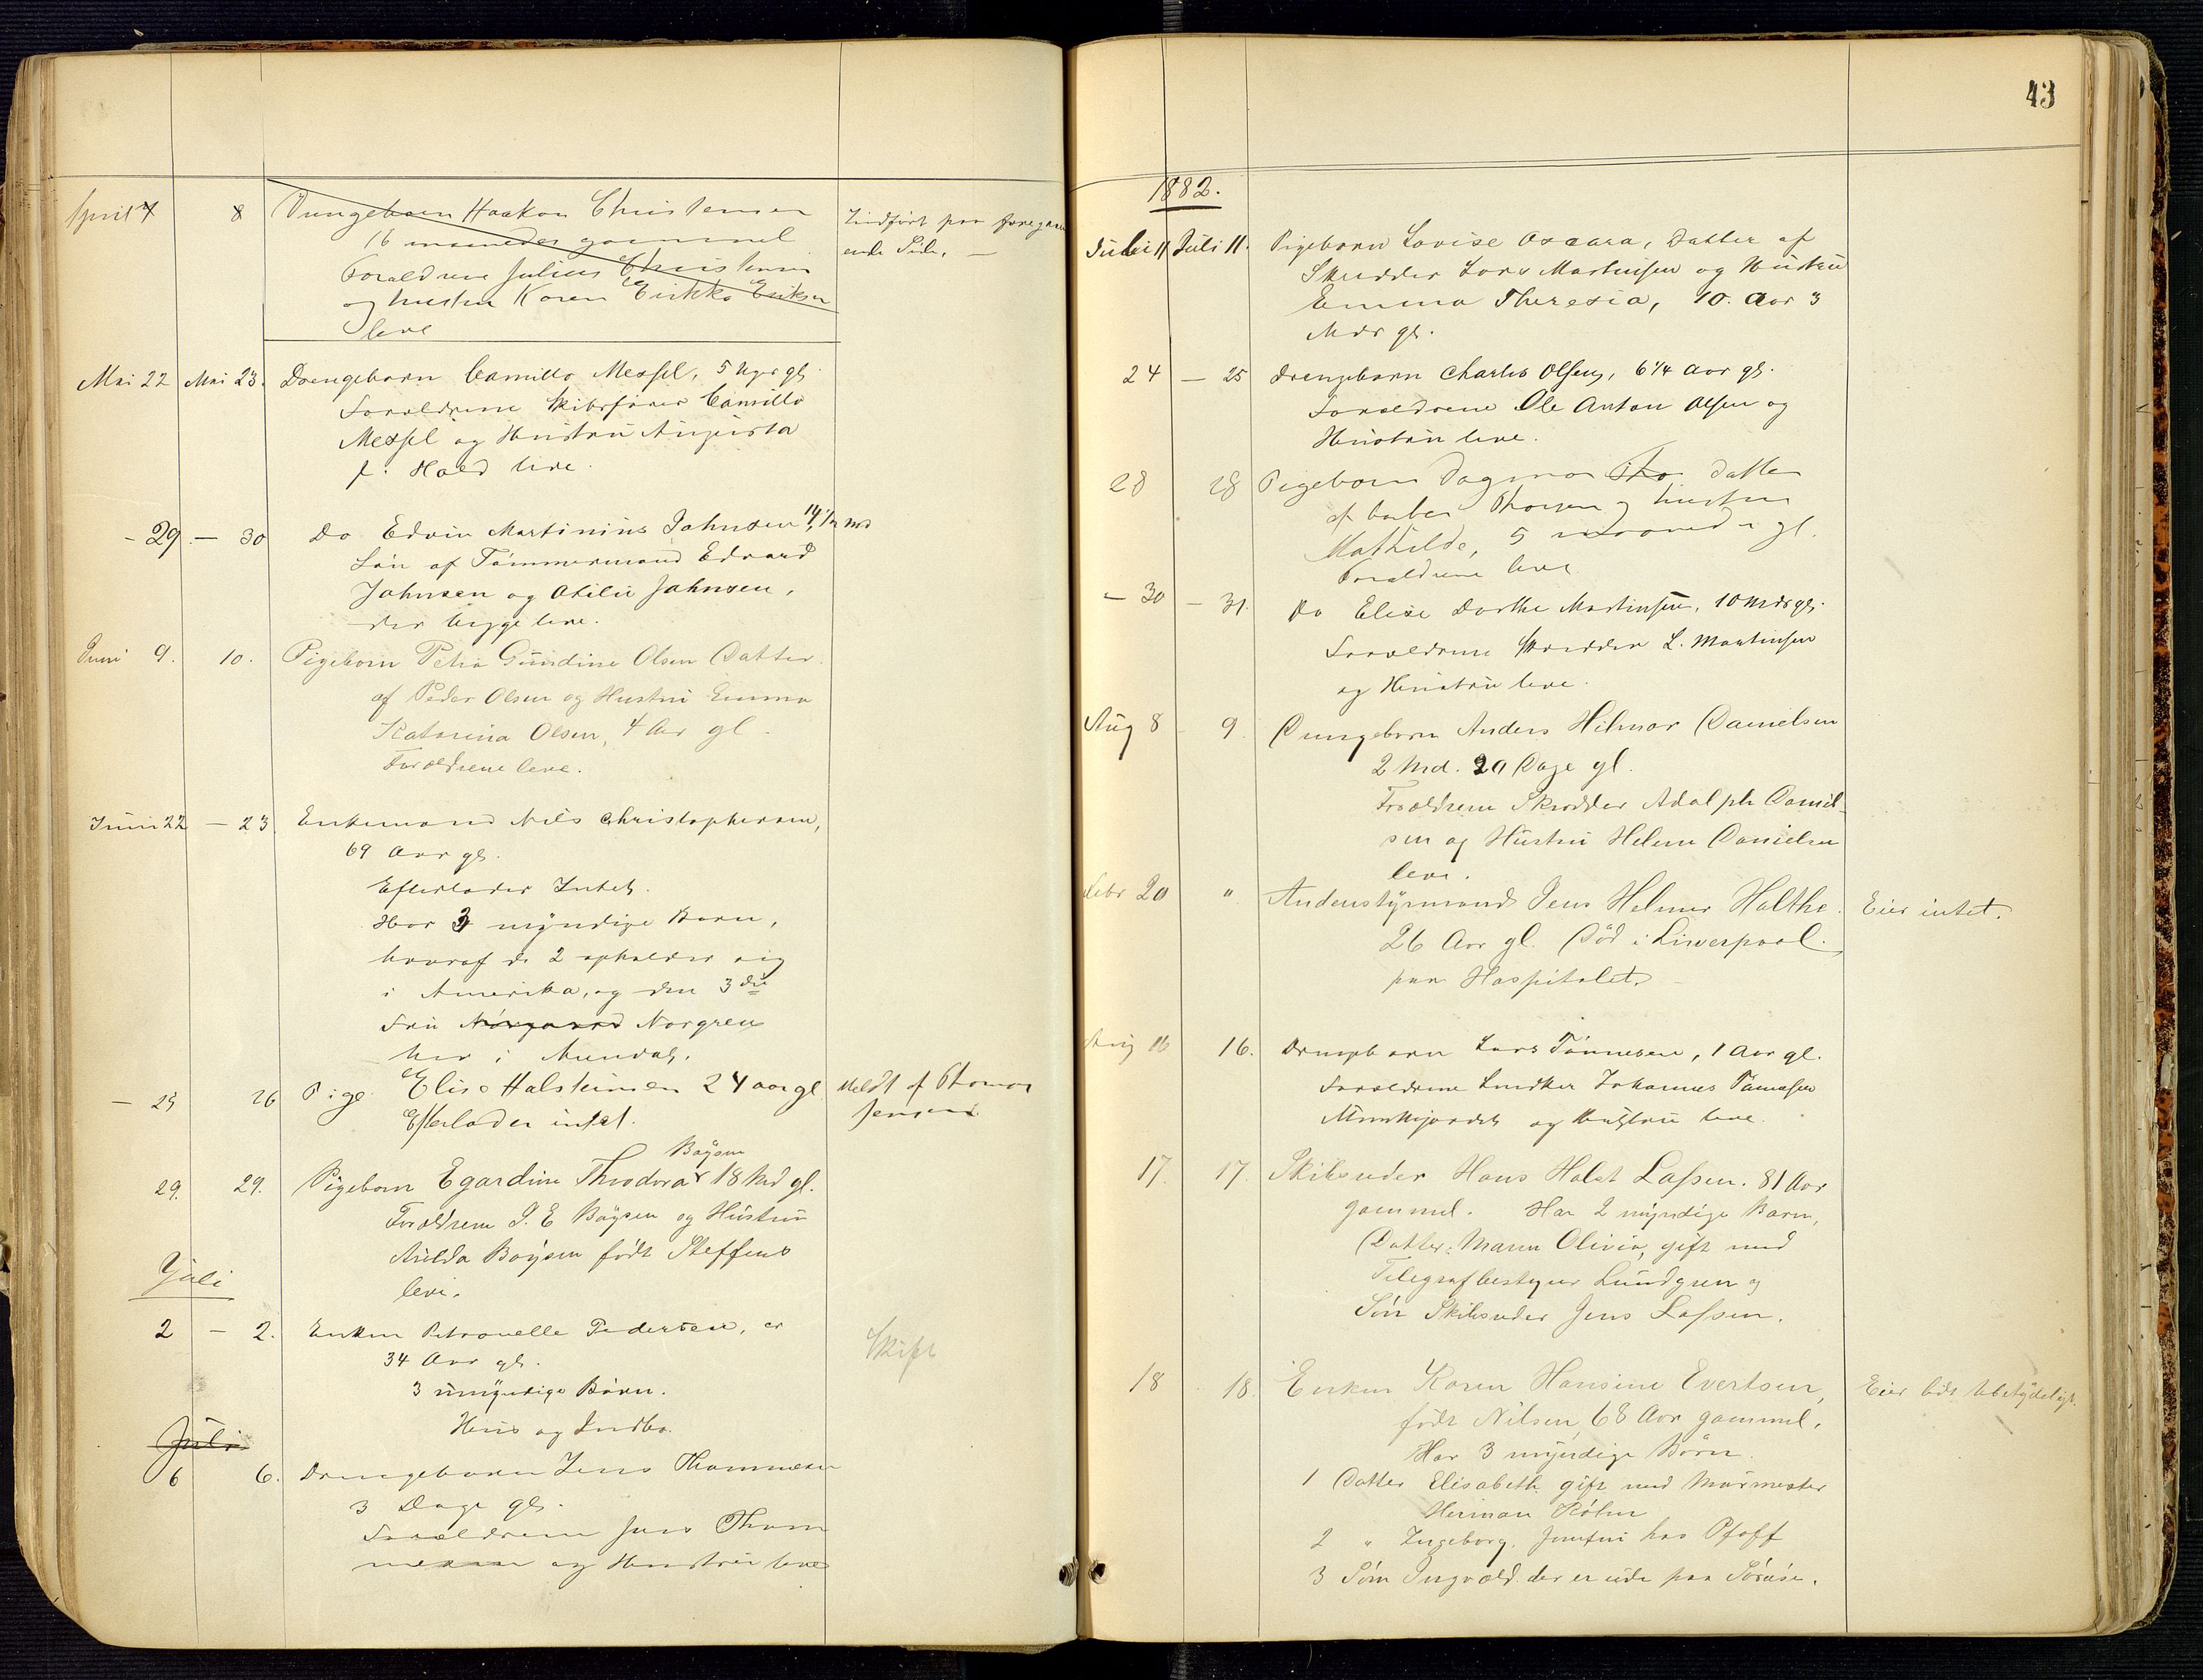 April 7 8 Drengebarn Haakon Christensen Indført paa foregaa
16 maaneder gammel ende Side. —
Forældrene Julius Christensen
og hustru Karen Eriksen
leve
Mai 22 Mai 23. Drengebarn Camillo Messel, 5 Uger gl.
Forældrene Skibsfører Camillo
Messel og Hustru Augusta
f. Hald leve.
- 29. — 30 Do Edvin Martinius Johnsen
Søn af Tømmermand Edvard
Johnsen og Otilie Johnsen,
der begge leve.
Juni 9. 10. Pigebarn Petra Gundine Olsen Datter
af Peder Olsen og Hustru Emma
Katarina Olsen, 4 Aar gl.
Forældrene leve.
Juni 22 — 23 Enkemand Nils Christophersen,
69 Aar gl.
Efterlader Intet.
Har 3 myndige Børn,
hvoraf de 2 opholder sig
i Amerika, og den 3die
Fru Norgren
her i Arendal.
— 25 26 Pige Elise Halsteinsen 24 aar gl Meldt af Thomas
Efterlader intet. Jensen
Boysen
29. 29. Pigebarn Egardine Theodora 18 Md gl.
Forældrene J. E Boysen og Hustru
Milda Boysen født Steffens
leve.
Juli
2 — 2. Enken Petronelle Pedersen, er Skift
34 Aar gl.
3 umyndige Børn.
Hus og Indbo.
Juli
6 6. Drengebarn Jens Thommesen
3 Dage gl.
Forældrene Jens Thom
mesen og Hustru leve
43
1882.
Juli 11 Juli 11. Pigebarn Lovise Oscara, Datter af
Skrædder Lars Martinsen og Hustru
Emma Theresia, 10 Aar 3
Mdr gl.
24 — 25 Drengebarn Charles Olsen, 6 1/4 Aar gl.
Forældrene Ole Anton Olsen og
Hustru leve.
28 28 Pigebarn Dagmar Tho Datter
af barber Thorsen og hustru
Mathilde, 5 maaneder gl.
Forældrene leve
— 30 — 31. Do Elise Dorthe Martinsen, 10 Mdr gl.
Forældrene Skrædder L. Martinsen
og Hustru leve.
Aug 8 9. Drengebarn Anders Hilmar Danielsen
2 Md. 20 Dage gl.
Forældrene Skrædder Adolph Daniel-
sen og Hustru Helene Danielsen
leve.
Febr 20 " Andenstyrmand Jens Helmer Holthe. Eier intet.
26 Aar gl. Død i Liwerpool
paa Hospitalet.
Aug 16 16. Drengebarn Lars Tønnesen, 1 Aar gl.
Forældrene Snedker Johannes Tønnesen
Munkejordet og Hustru leve.
17. 17. Skibsreder Hans Holst Lassen. 81 Aar
gammel. Har 2 myndige Barn,
Datter: Maren Olivia, gift med
Telegrafbestyrer Lundgren og
Søn Skibsreder Jens Lassen.
18 18. Enken Karen Hansine Evertsen, Eier lidt ubetydeligt.
født Nilsen, 68 Aar gammel.
Har 3 myndige Børn.
1 Datter Elisabeth gift med Murmester
Herman Köhn
2 " Ingeborg, Jomfru hos Pfaff
3 Søn Ingvald der er ude paa Søreise.